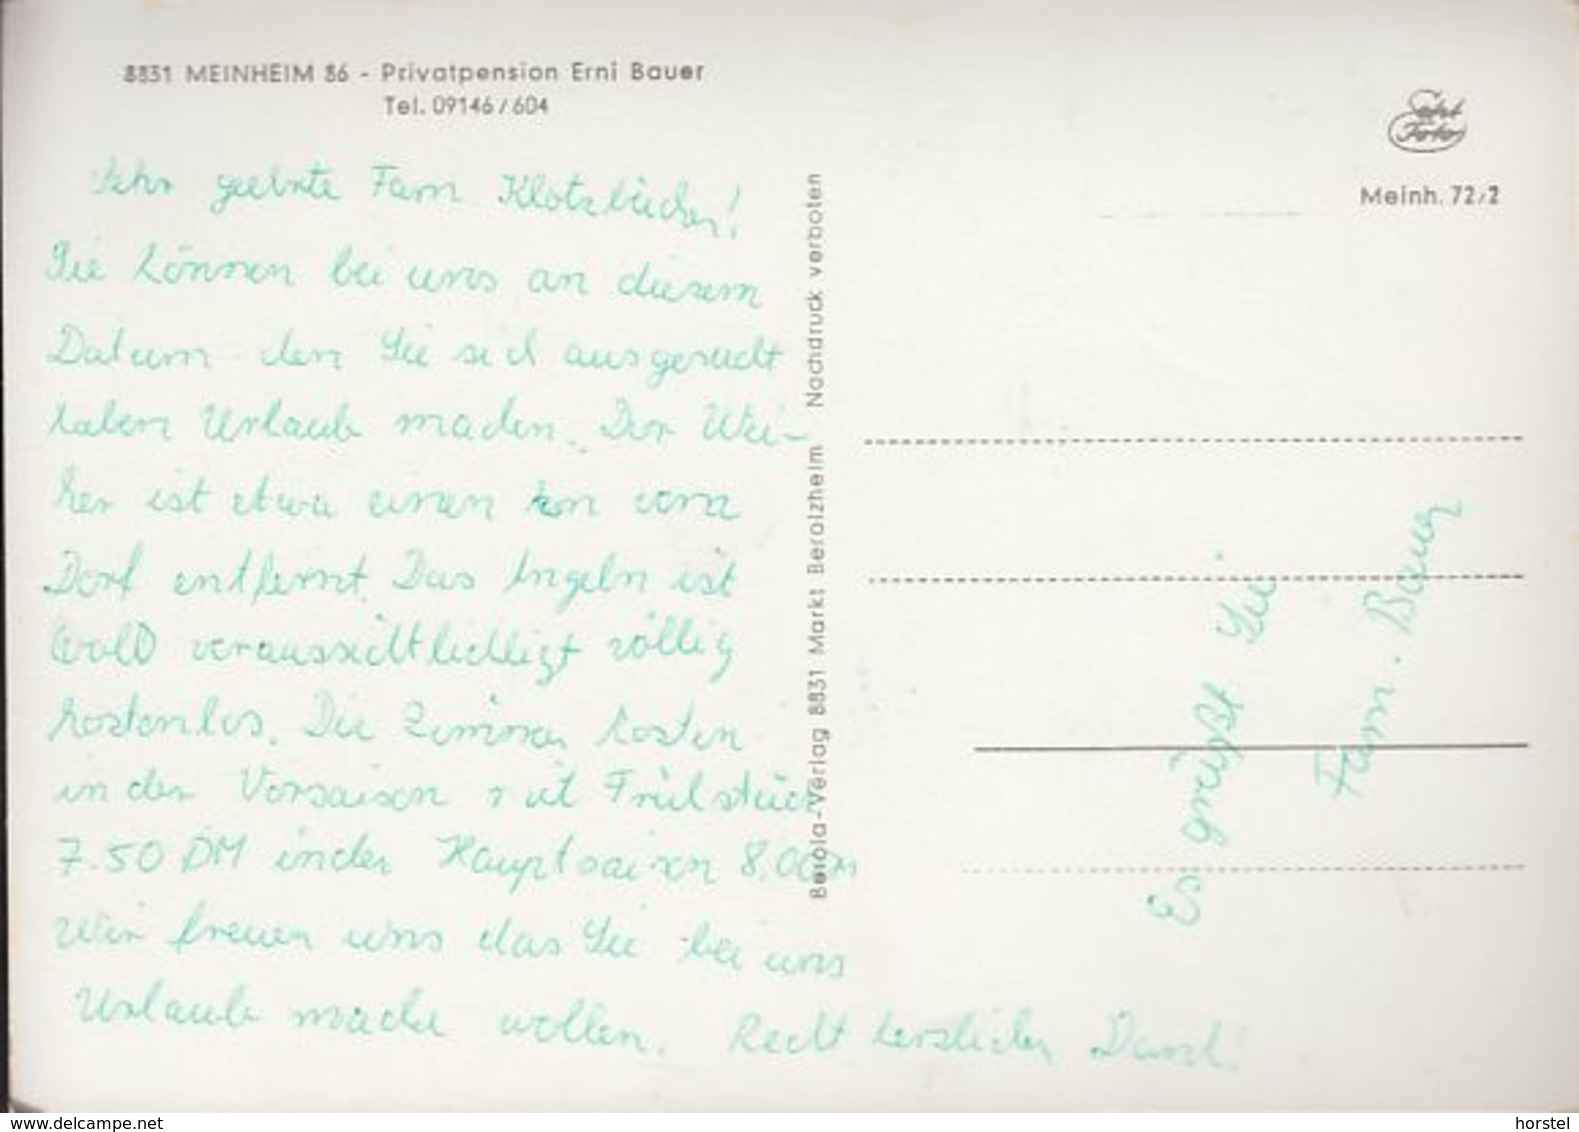 8831 MEINHEIM 86 - Privatpension Erni Bauer
Tel. 09146/604
Echt
Foto
Meinh. 72/2
Sehr geehrte Fam Klotzbücher!
Sie können bei uns an diesem
Datum den Sie sich ausgesucht
haben Urlaub machen. Der Wei-
her ist etwa einen km vom
Dorf entfernt. Das Angeln ist
voraussichtlich völlig
kostenlos. Die Zimmer kosten
in der Vorsaison mit Frühstück
7.50 DM in der Hauptsaison 8.00
Wir freuen uns das Sie bei uns
Urlaub mache wollen. Recht herzlichen Dank!
Berola-Verlag 8831 Markt Berolzheim Nachdruck verboten
Es grüßt Sie
Fam. Bauer
www.delcampe.net
horstel